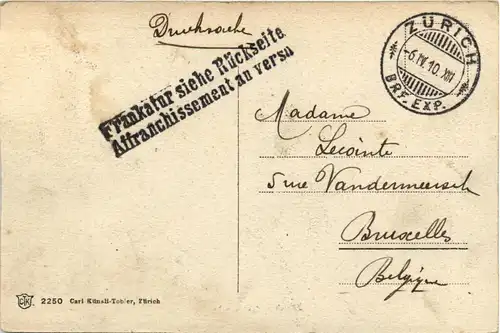 Drucksache
Frankatur siehe Rückseite
Affranchissement au verso
ZÜRICH
-6.IV.10.XII
BRF. EXP.
Madame
Lecointe
5 rue Vandermeersch
Bruxelles
Belgique
2250 Carl Künzli-Tobler, Zürich